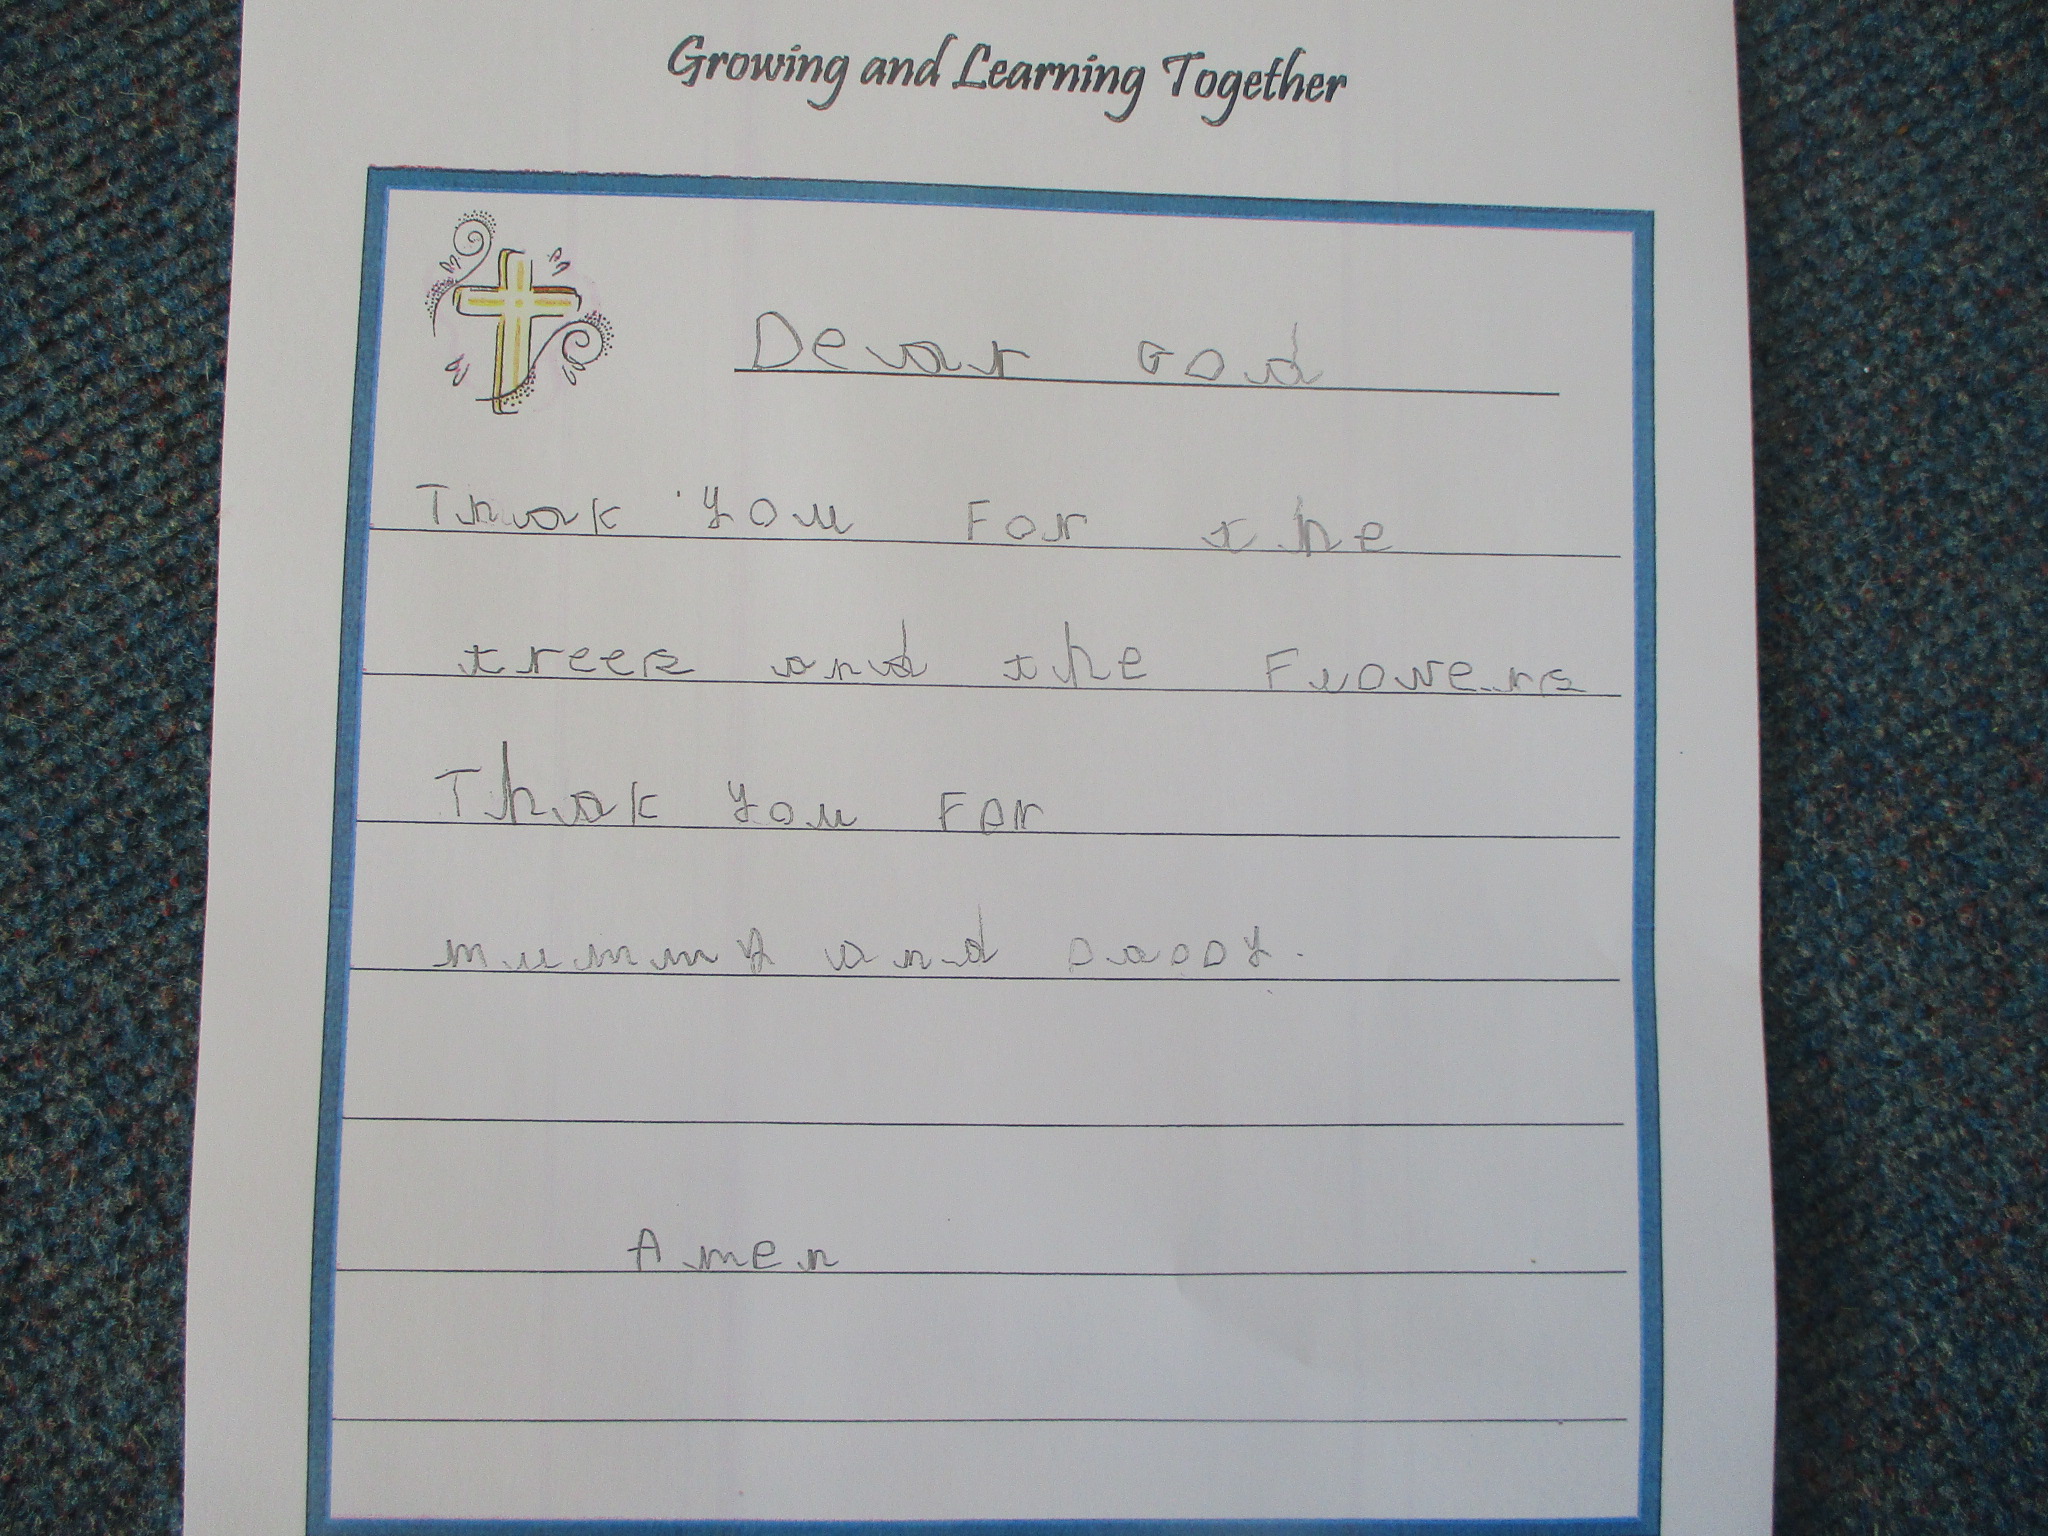 Growing and Learning Together
Dear God
Thak you For the
trees and the Flowers
Thak you For
mummy and Daddy.
Amen